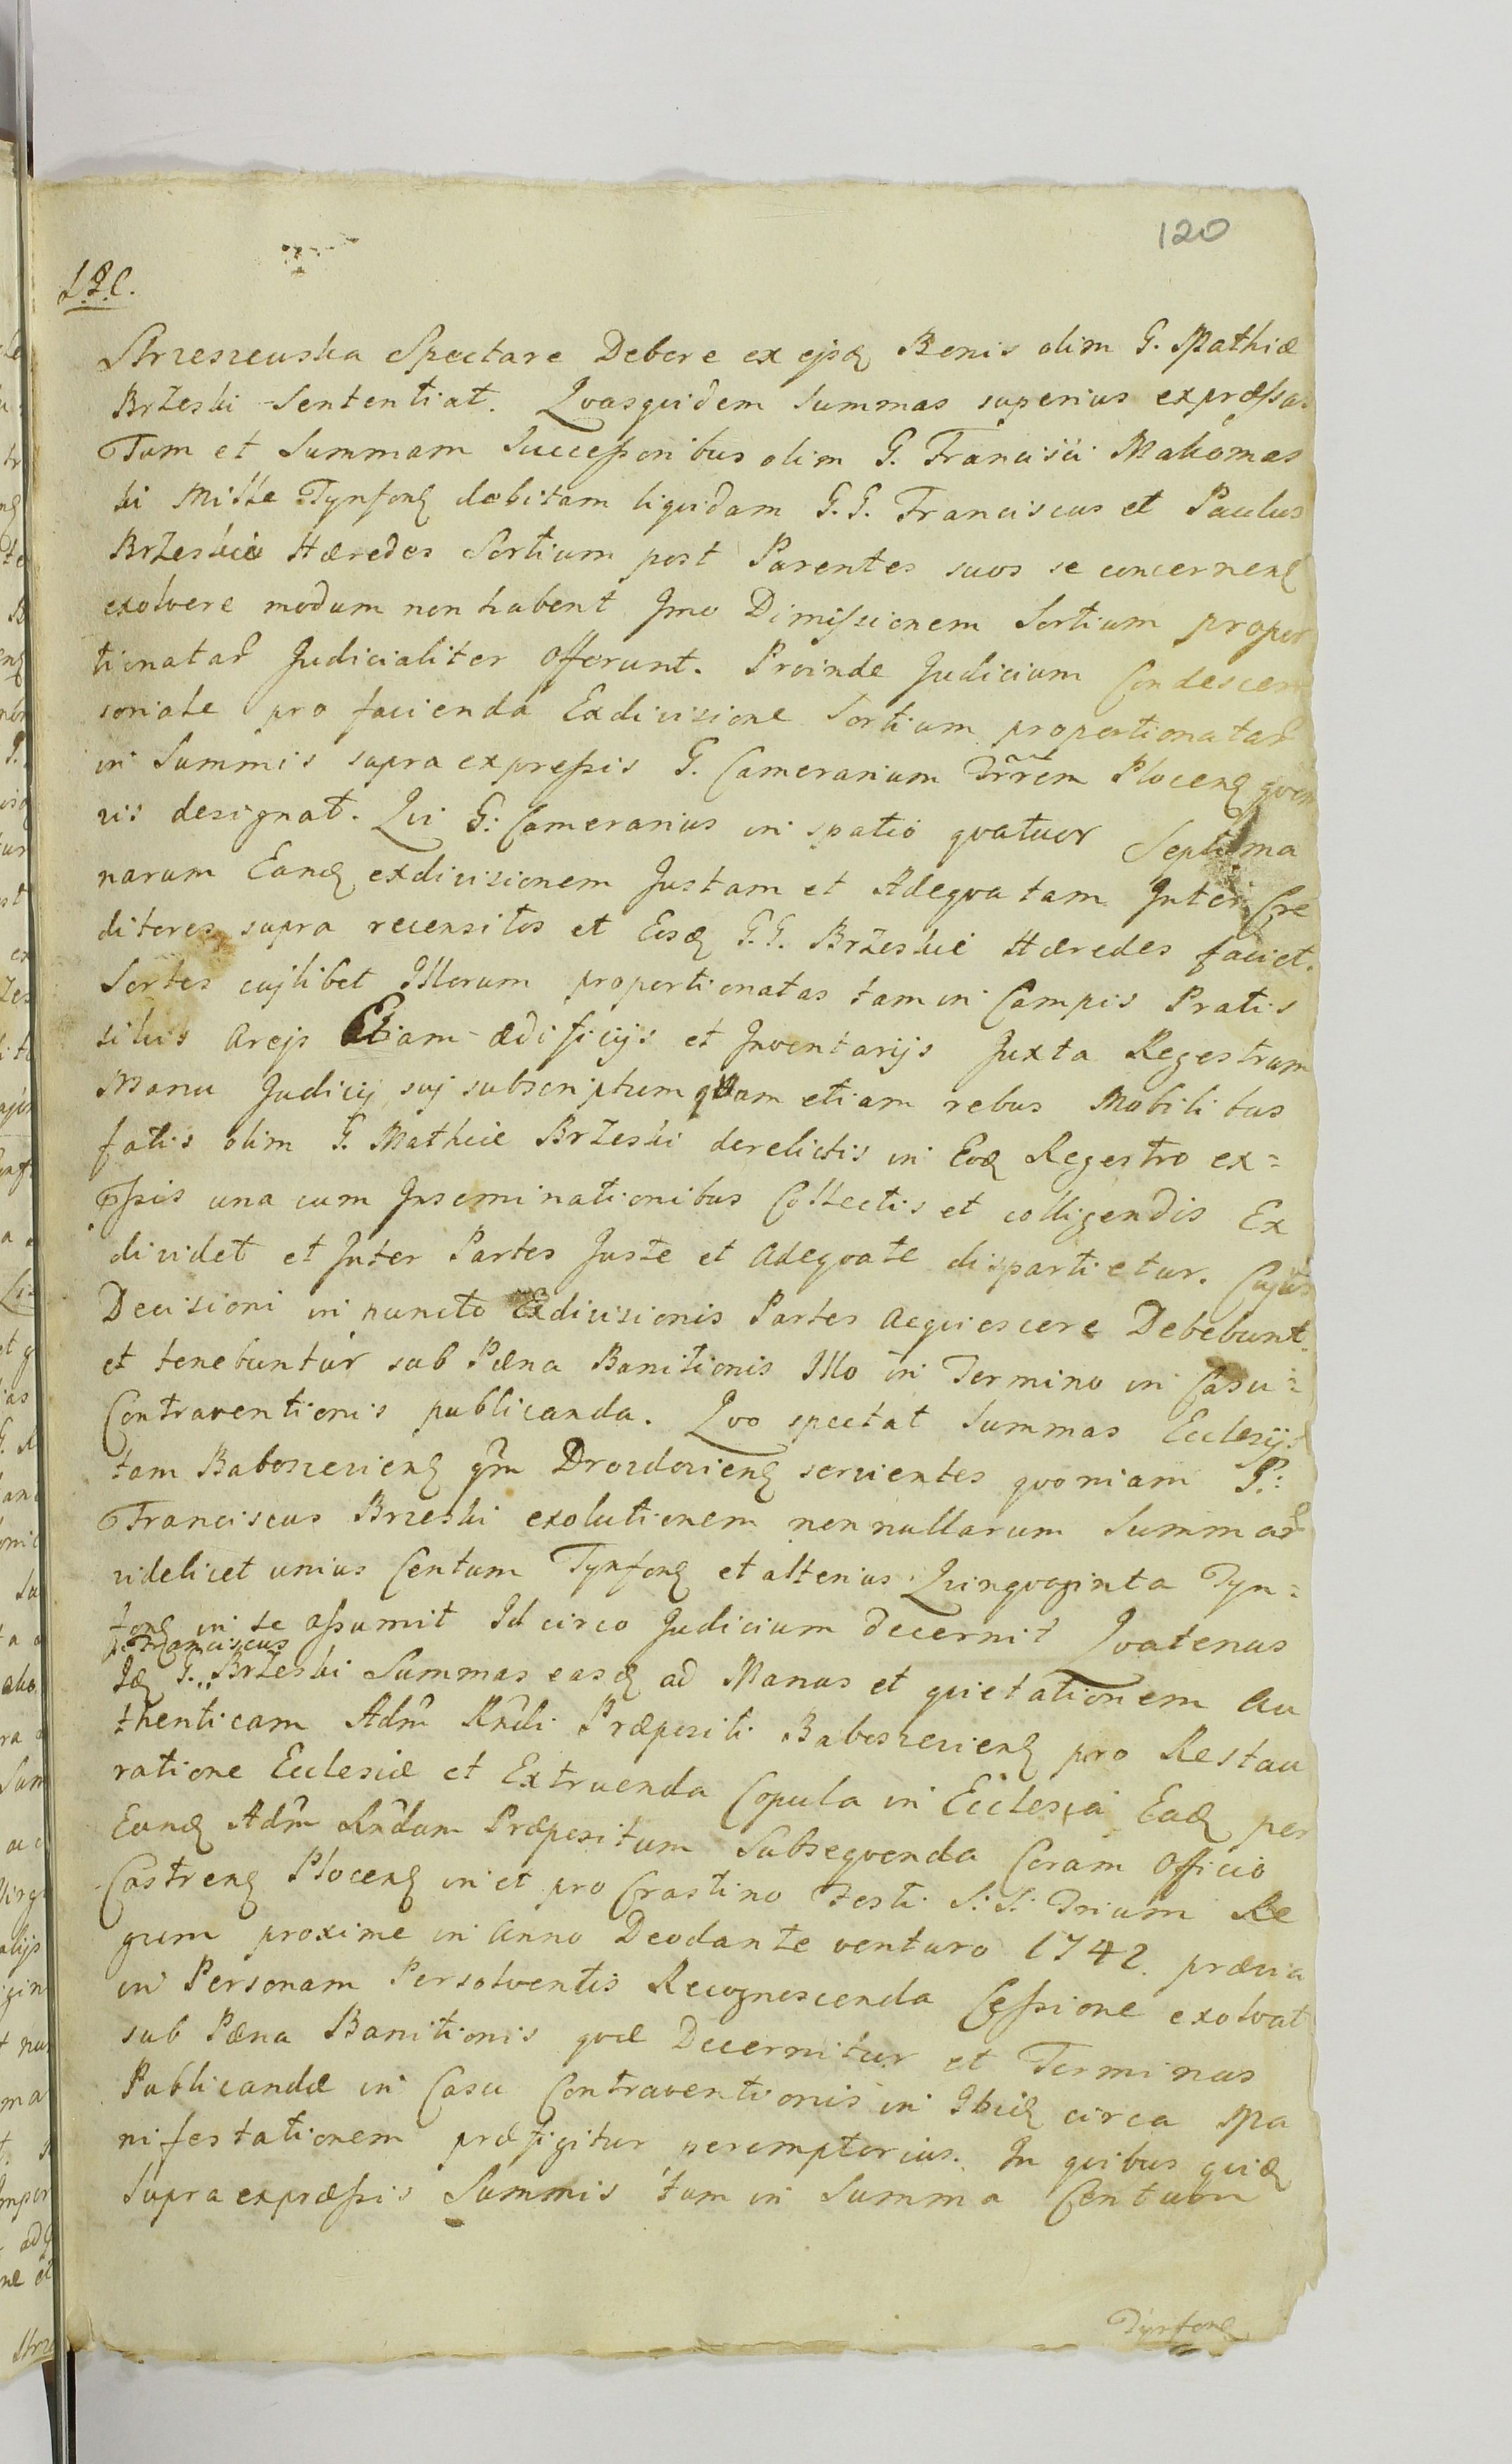 120
L.R.C.
Strzeszewska Spectare Debere ex ejsq Bonis olim G. Mathiæ
Brzeski Sententiat. Qvasqvidem Summas superius expræssas
Tum et Summam Successoribus olim G. Francisci Makomas
ki Mille Tynfonq debitam liqvidam G.G. Franciscus et Paulus
Brzeskie Hæredes Sortium post Parentes suos se concernenq
exolvere modum non habent Imo Dimissionem Sortium propor
tionatar Judicialiter Offerunt. Proinde Judicium Condescen
soriale pro facienda Exdivisione Sortium proportionatar
in Summis supra expressis G. Camerarium Trrem Plocenq qvem
vis designat. Qvi G. Camerarius in spatio qvatuor Septima
narum Eanq exdivisionem Justam et Adeqvatam Inter Cre
ditores supra recensitos et Eosq G.G. Brzeskie Hæredes faciet.
Sortes cujlibet Illorum proportionatas tam in Campis Pratis
silvis Arejs Etiam ædificijs et Inventarijs Juxta Regestrum
Manu Judicij suj subscriptum qvam etiam rebus Mobilibus
fatis olim G. Mathiæ Brzeski derelictis in Eoq Regestro ex=
pssis una cum Inseminationibus Collectis et colligendis Ex
dividet et Inter Partes Juste et Adeqvate dispartietur. Cujus
Decisioni in puncto Exdivisionis Partes Acqviescere Debebunt
et tenebuntur sub Pæna Banitionis Illo in Termino in Casu=
Contraventionis publicanda. Qvo spectat Summas Ecclesijs
tam Baboszevienq qm Drozdovienq servientes qvoniam G:
Franciscus Brzeski exolutionem nonnullarum Summar
videlicet unius Centum Tynfonq et alterius Qvinqvaginta Tyn=
fonq in se assumit Idcirco Judicium decernit Qvatenus
Franciscus
Idq G. Brzeski Summas easq ad Manus et qvietationem Au
thenticam Adm Rndi Præpositi Baboszevienq pro Restau
ratione Ecclesiæ et Extruenda Copula in Ecclesia Eaq per
Eunq Adm Rndum Præpositum Subseqvenda Coram Officio
Castrenq Plocenq in et pro Crastino Festi S.S. Trium Re
gum proxime in Anno Deodante venturo 1742. prævia
in Personam Persolventis Recognoscenda Cessione exolvat
sub Pæna Banitionis qvæ Decernitur et Terminus
Publicandæ in Casu Contraventionis in Ibiq circa Ma
nifestationem præfigitur peremptorius. In qvibus qviq
Supra expræssis Summis tum in Summa Centum
Tynfonq